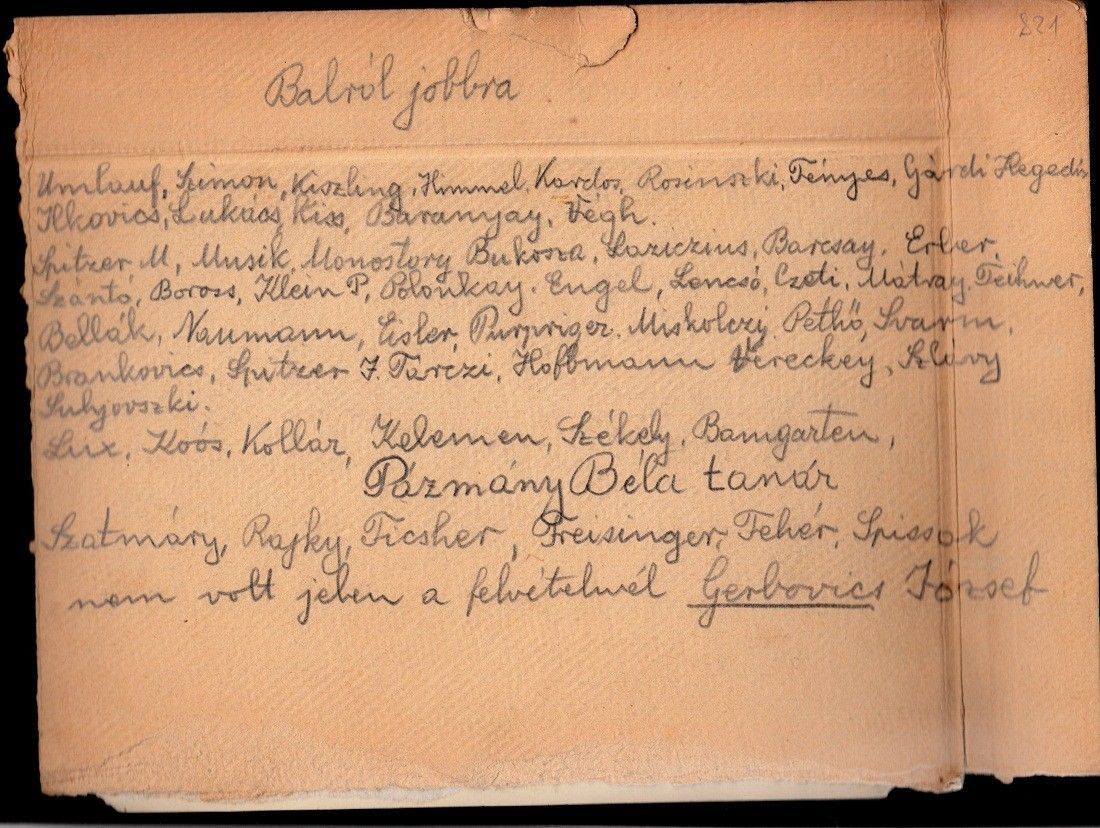 821
Balról jobbra
Umlauf, Szimon, Kiszling, Himmel, Kardos, Rosinszki, Fényes, Gárdi Hegedűs
Ilkovics, Lukács, Kiss, Baranyay, Végh.
Spitzer M, Musik, Monostory Bukosza, Laziczius, Barcsay, Erber,
Szántó, Boross, Klein P, Polonkay. Engel, Lencsó, Czeti, Mátray, Teihner,
Bellák, Naumann, Eisler, Purpriger. Miskolczy Pethő, Svarm,
Brankovics, Spitzer J. Turczi, Hoffmann Vereckey, Szlávy
Sulyovszki.
Lux, Koós, Kollár, Kelemen, Székely, Bamgarten,
Pázmány Béla tanár
Szatmáry, Rajky, Ficsher, Freisinger, Fehér, Spissak
nem volt jelen a felvételnél Gerbovics József